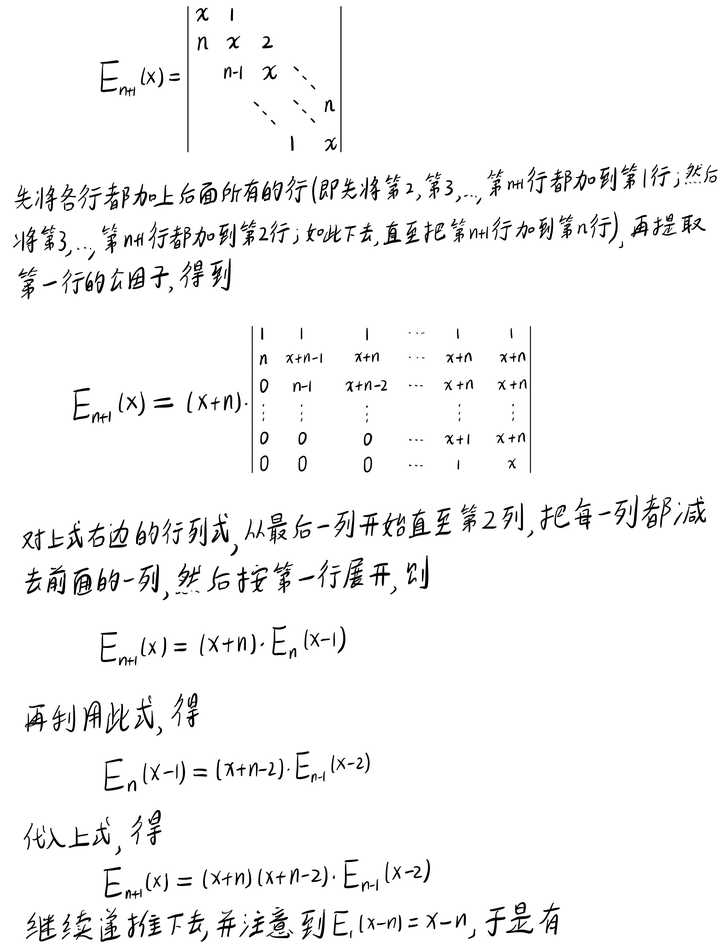 x 1
n x 2
E_{n+1}(x)= n-1 x ⋱
⋱ ⋱ n
1 x
先将各行都加上后面所有的行(即先将第2,第3,…,第n+1行都加到第1行;然后
将第3,…,第n+1行都加到第2行;如此下去,直至把第n+1行加到第n行),再提取
第一行的公因子,得到
1 1 1 ⋯ 1 1
n x+n-1 x+n ⋯ x+n x+n
0 n-1 x+n-2 ⋯ x+n x+n
E_{n+1}(x) = (x+n)·
⋮ ⋮ ⋮ ⋮ ⋮
0 0 0 ⋯ x+1 x+n
0 0 0 ⋯ 1 x
对上式右边的行列式,从最后一列开始直至第2列,把每一列都减
去前面的一列,然后按第一行展开,则
E_{n+1}(x) = (x+n)·E_n(x-1)
再利用此式,得
E_n(x-1) = (x+n-2)·E_{n-1}(x-2)
代入上式,得
E_{n+1}(x) = (x+n)(x+n-2)·E_{n-1}(x-2)
继续递推下去,并注意到E_1(x-n)=x-n,于是有